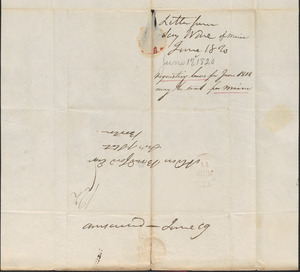 Letter from
Secy Ware of Maine
June 1820
June 17th 1820
requesting laws for June 1818
may be sent per Mann
Alden Bradford Esq
Secy of State
Boston
answered - June 19